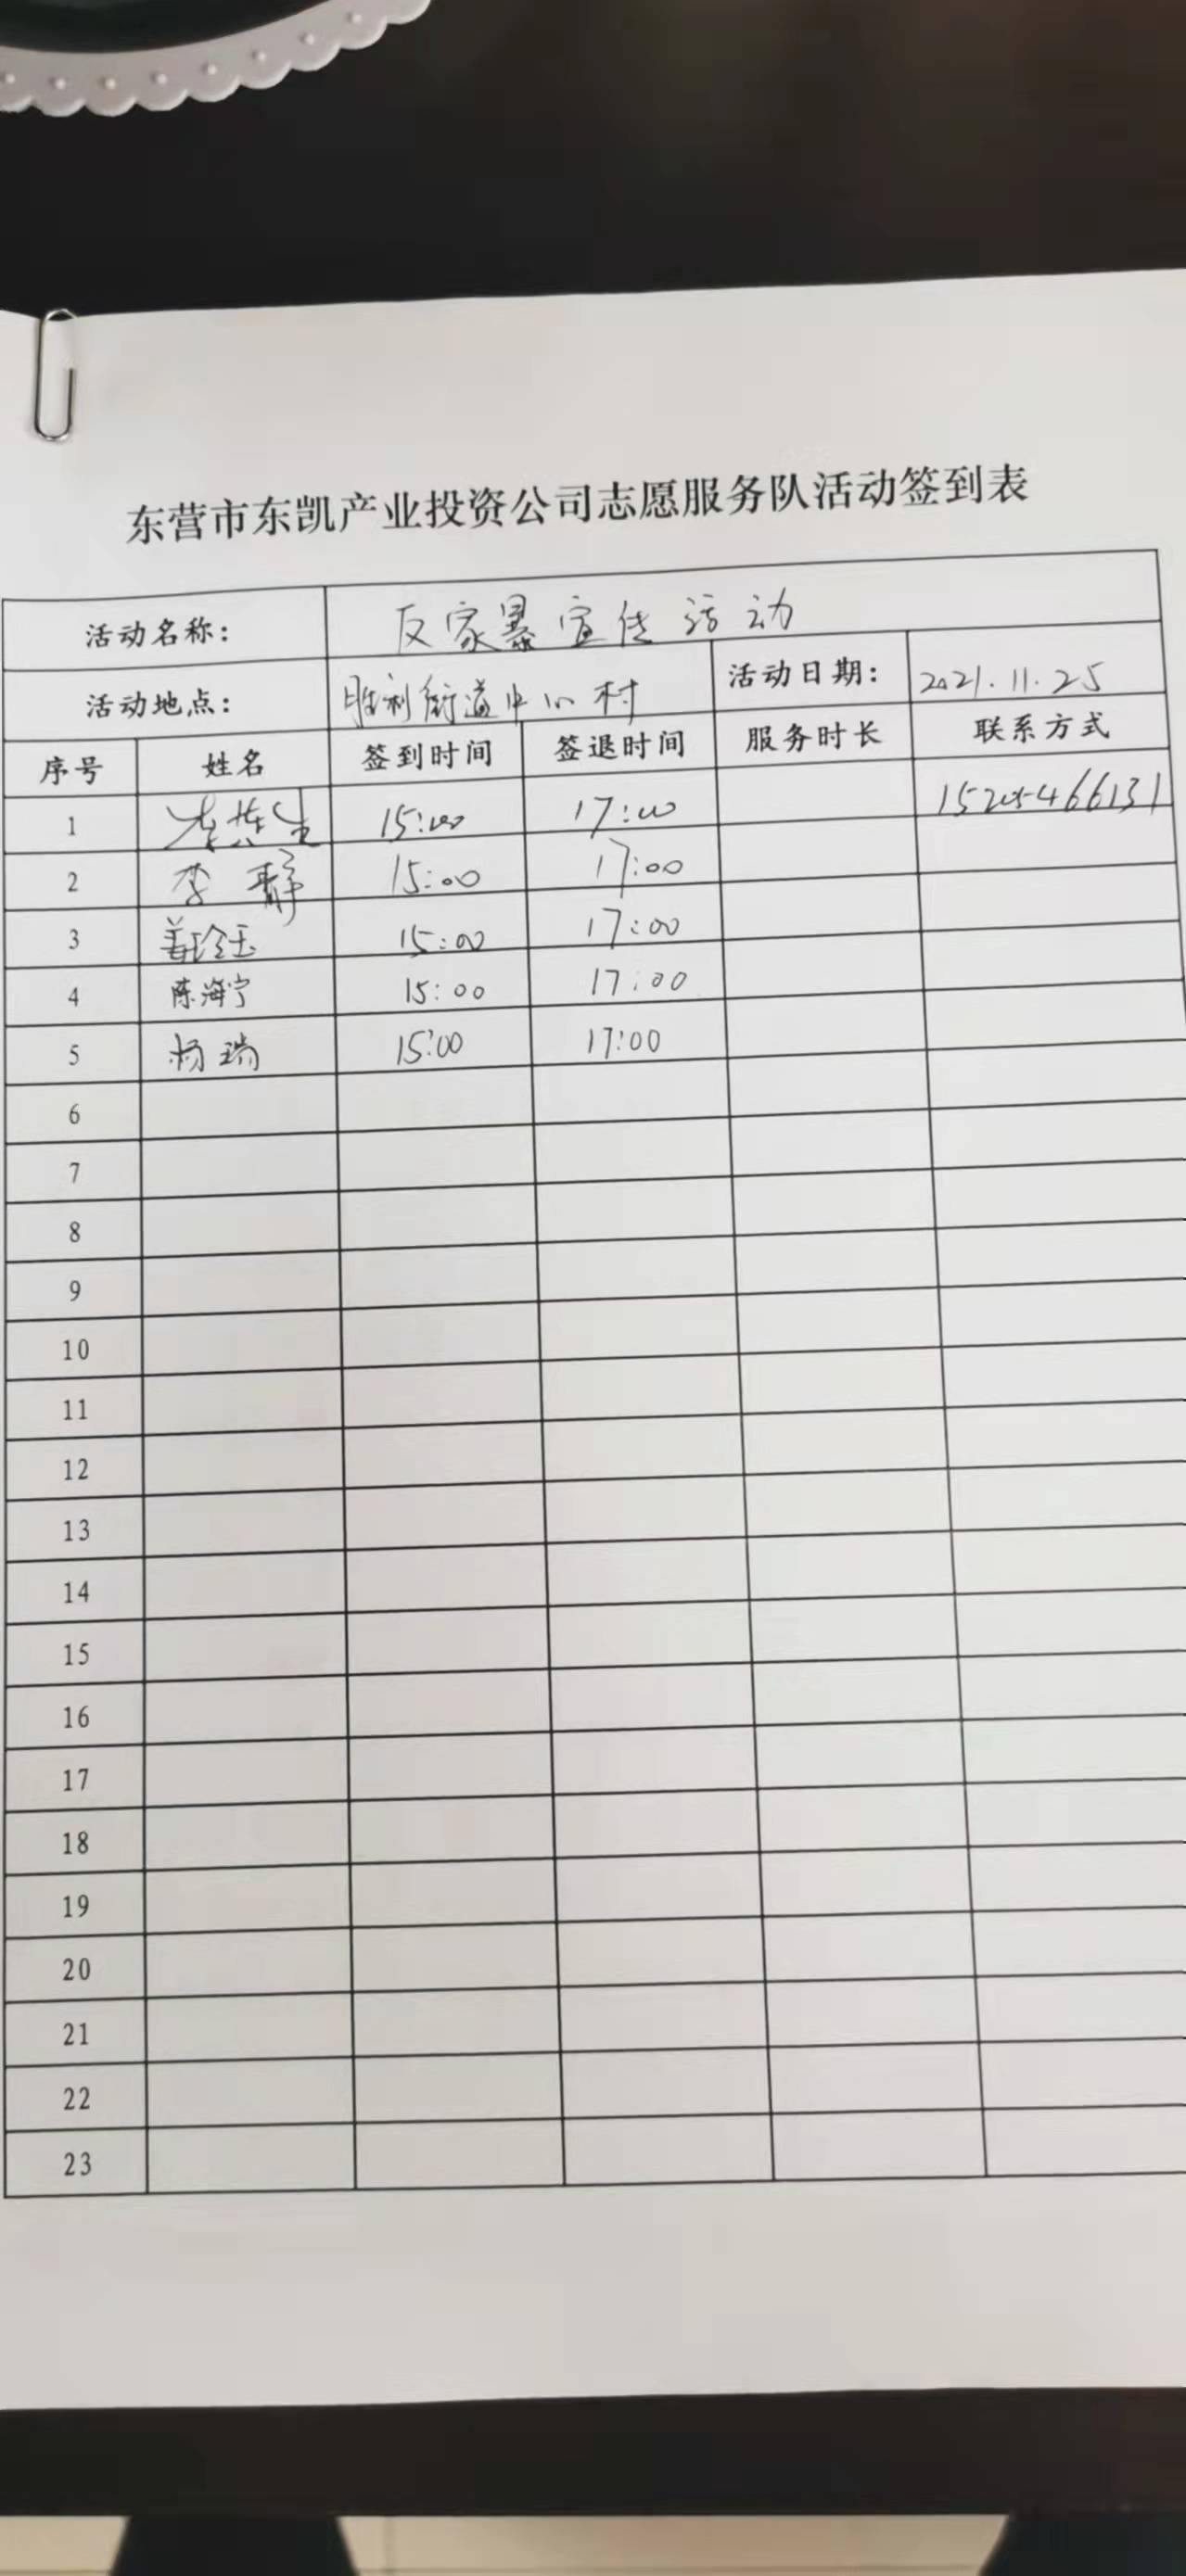 东营市东凯产业投资公司志愿服务队活动签到表
活动名称： 反家暴宣传活动
活动地点： 胜利街道中心村 活动日期： 2021.11.25
序号 姓名 签到时间 签退时间 服务时长 联系方式
1 15:00 17:00
2 李静 15:00 17:00
3 姜玲玉 15:00 17:00
4 陈海宁 15:00 17:00
5 杨瑞 15:00 17:00
6
7
8
9
10
11
12
13
14
15
16
17
18
19
20
21
22
23